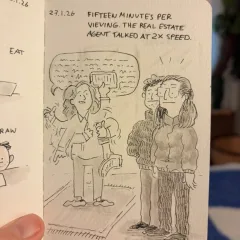 1.26
27.1.26
FIFTEEN MINUTE'S PER
VIEWING. THE REAL ESTATE
AGENT TALKED AT 2X SPEED.
EAT
RAW